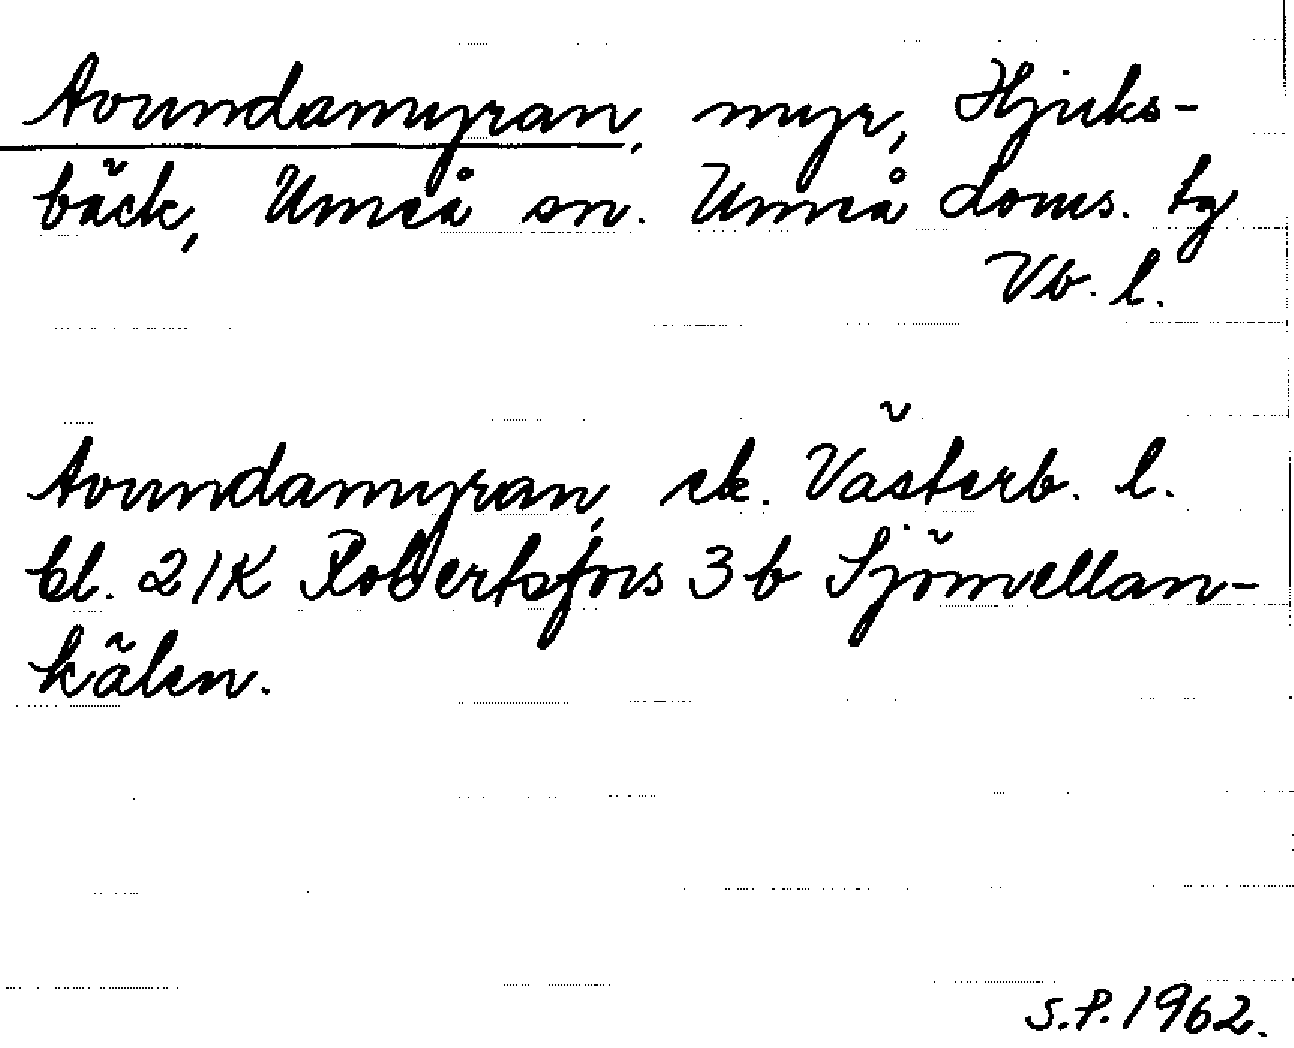 Avundamyran, myr, Hjuks-
bäck, Umeå sn. Umeå doms. tg
Vb. l.
Avundamyran, ek. Västerb. l.
bl. 21K Robertsfors 3b Sjömellan-
kälen.
S.P. 1962.